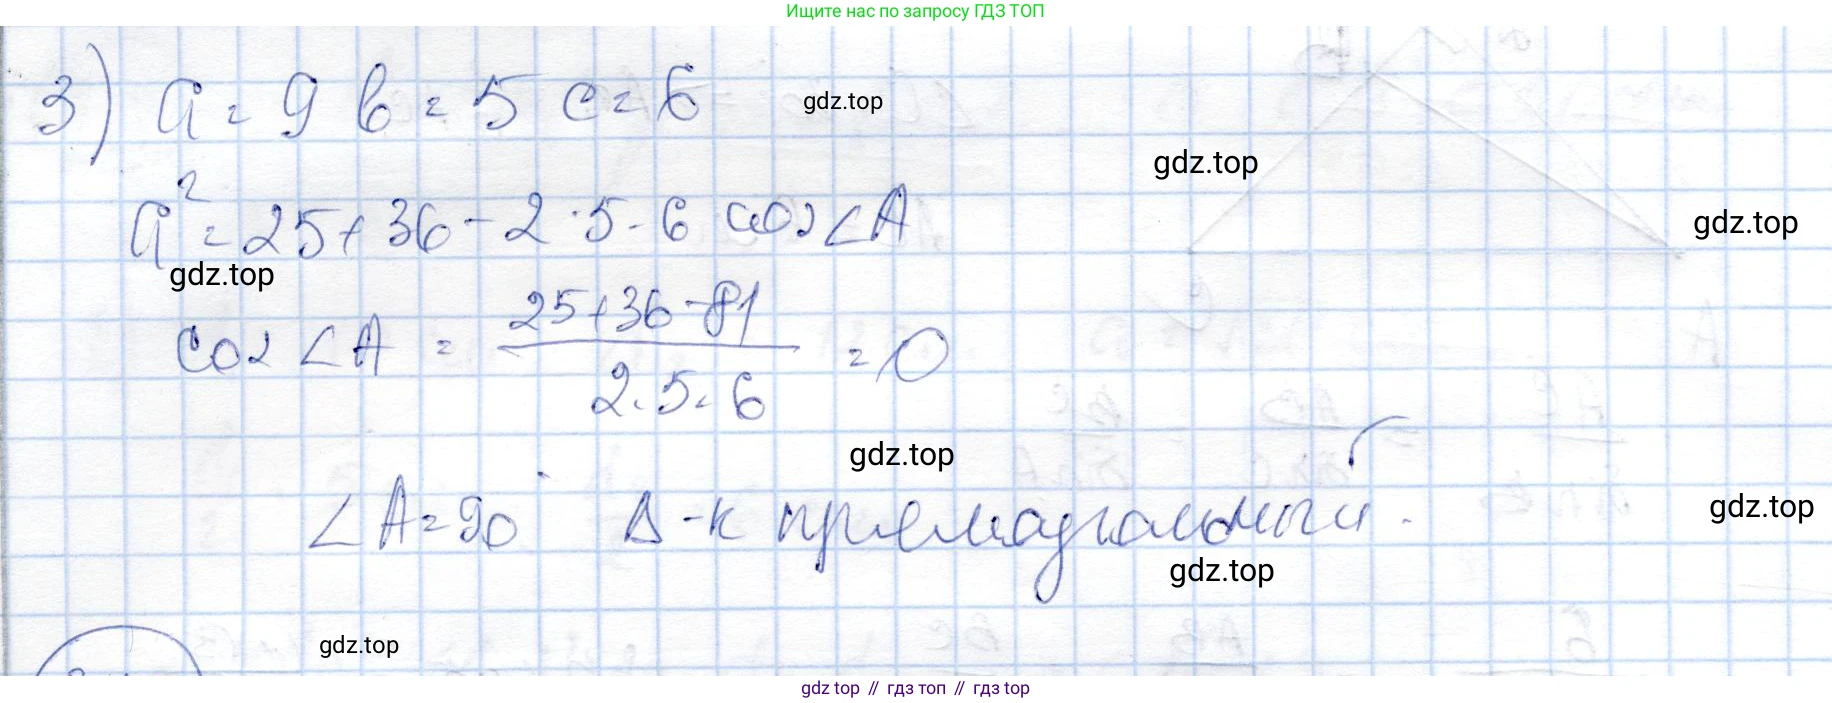 Ищите нас по запросу ГДЗ ТОП
3) a = 9 b = 5 c = 6
gdz.top
gdz.top
a² = 25 + 36 - 2 · 5 · 6 cos ∠A
gdz.top
gdz.top
cos ∠A = (25 + 36 - 81) / (2 · 5 · 6) = 0
gdz.top
∠A = 90° Δ-к прямоугольный.
gdz.top
gdz.top
gdz.top
gdz top // гдз топ // гдз top